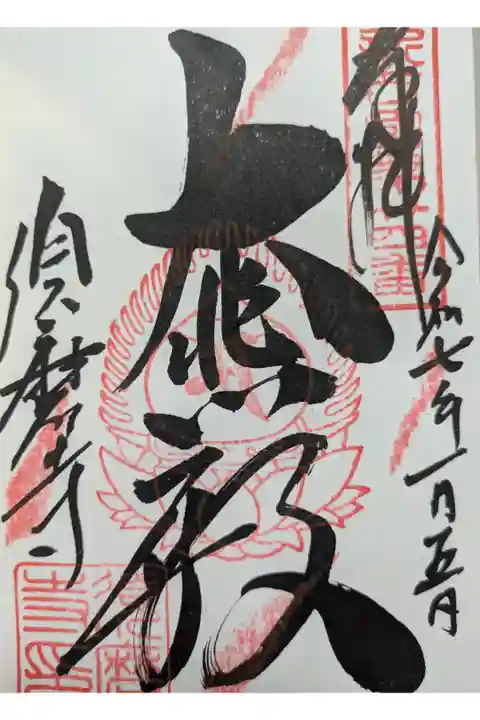 奉拝
令和七年一月五日
大悲殿
須磨寺